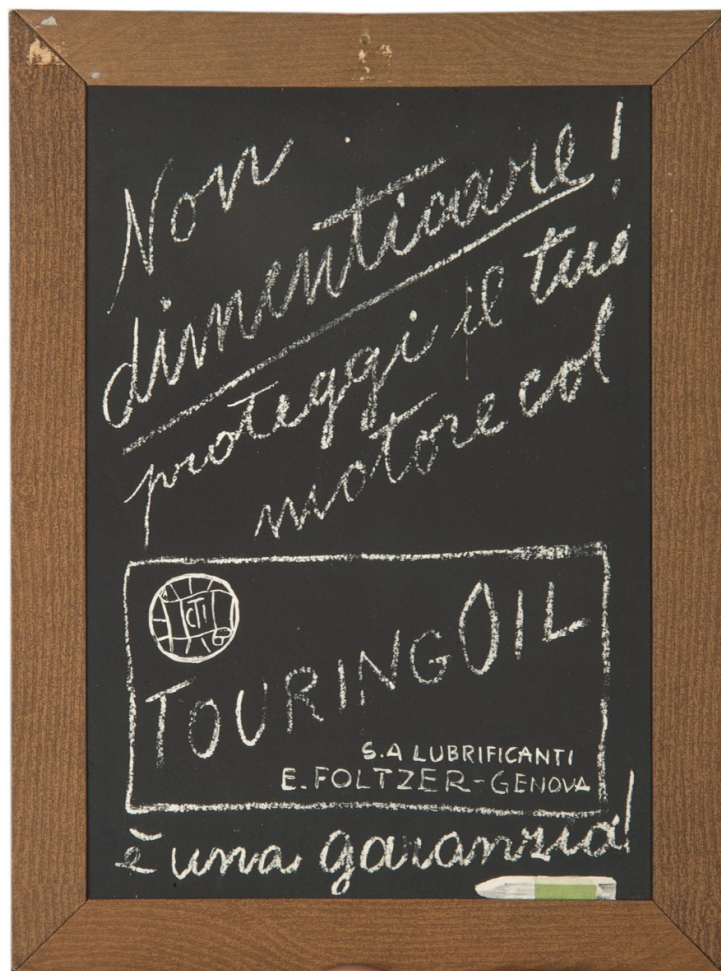 Non
dimenticare!
proteggi il tuo
motore col
CTI
TOURING OIL
S.A LUBRIFICANTI
E. FOLTZER-GENOVA
è una garanzia!